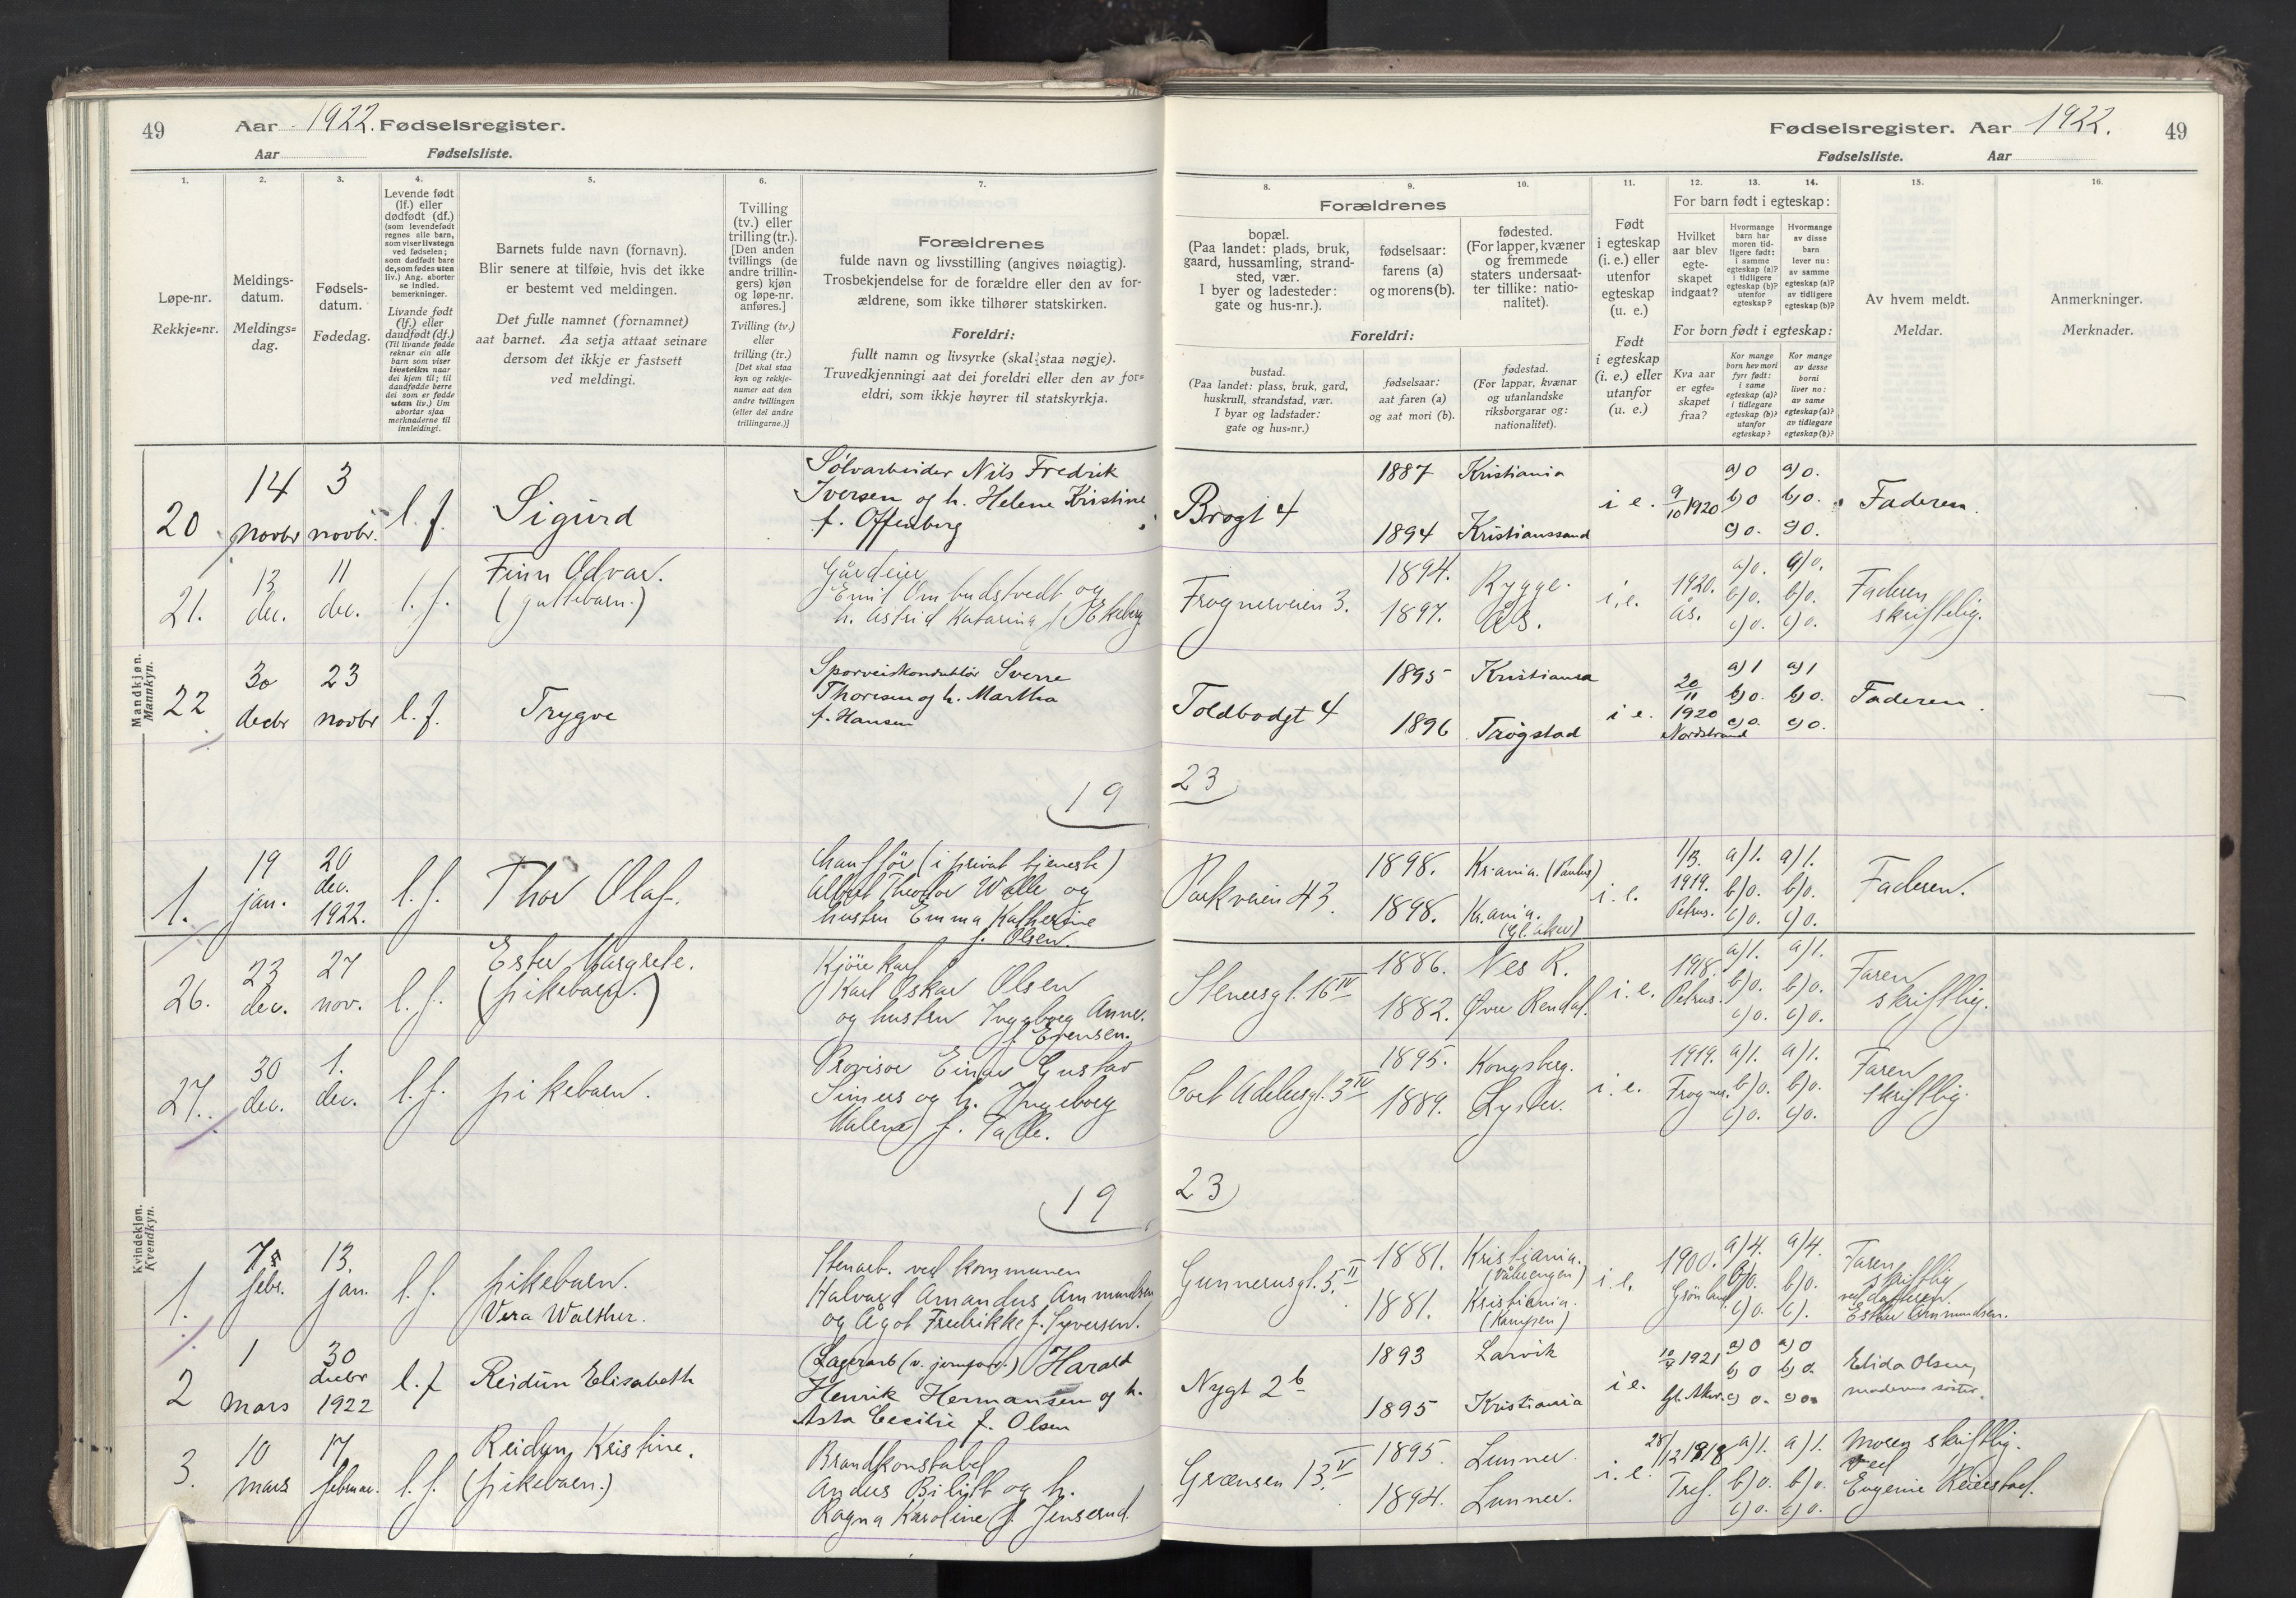 49
Aar 1922. Fødselsregister.
Aar
Fødselsliste.
1.
2.
3.
4.
5.
6.
7.
Løpe-nr.
Rekkje=nr.
Meldings-
datum.
Meldings=
dag.
Fødsels-
datum.
Fødedag.
Levende født
(lf.) eller
dødfødt (df.)
(som levendefødt
regnes alle barn,
som viser livstegn
ved fødselen;
som dødfødt bare
de, som fødes uten
liv.) Ang. aborter
se indled.
bemerkninger.
Livande født
(lf.) eller
daudfødt (df.)
(Til livande fødde
reknar ein alle
barn som viser
livsteikn naar
dei kjem til; til
daudfødde berre
dei som er fødde
utan liv.) Um
abortar sjaa
merknaderne til
innleidingi.
Barnets fulde navn (fornavn).
Blir senere at tilføie, hvis det ikke
er bestemt ved meldingen.
Det fulle namnet (fornamnet)
aat barnet. Aa setja attaat seinare
dersom det ikkje er fastsett
ved meldingi.
Tvilling
(tv.) eller
trilling (tr.).
[Den anden
tvillings (de
andre trillin-
gers) kjøn
og løpe-nr.
anføres.]
Tvilling (tv.)
eller
trilling (tr.)
[Det skal staa
kyn og rekkje-
numer aat den
andre tvillingen
(eller dei andre
trillingarne.)]
Forældrenes
fulde navn og livsstilling (angives nøiagtig).
Trosbekjendelse for de forældre eller den av for-
ældrene, som ikke tilhører statskirken.
Foreldri:
fullt namn og livsyrke (skal staa nøgje).
Truvedkjenningi aat dei foreldri eller den av for=
eldri, som ikkje høyrer til statskyrkja.
Mandkjøn.
Mannkyn.
20
14
novbr
3
novbr.
l. f.
Sigurd
Sølvarbeider Nils Fredrik
Iversen og h. Helene Kristine
f. Offenberg
21.
13
dec.
11
dec.
l. f.
Finn Odvar.
(guttebarn.)
Gårdeier
Emil Ombudstvedt og
h. Astrid Katarina f. Ekeberg
22
30
decbr
23
novbr
l. f.
Trygve
Sporveiskonduktør Sverre
Thoresen og h. Martha
f. Hansen
19
1.
19
jan.
20
dec.
1922.
l. f.
Thor Olaf.
Chauffør (i privat tjeneste)
Albert Theodor Walle og
hustru Emma Katherine
f. Olsen.
26.
23
dec.
27
nov.
l. f.
Ester Margrete.
(pikebarn.)
Kjørekarl
Karl Oskar Olsen
og hustru Ingeborg Anne.
f. Evensen.
27.
30
dec.
1.
dec.
l. f.
pikebarn.
Provisor Einar Gustav
og h. Ingeborg
Malene f.
19
Kvindekjøn.
Kvendkyn.
1.
febr.
13.
jan.
l. f.
pikebarn.
Vera Walther.
Stenarb. ved kommunen
Halvard Amandus Ammundsen
og Ågot Fredrikke f. Syversen.
2
1
mars
30
decbr
1922
l. f.
Reidun Elisabeth
Lagerarb (v. jernforr.) Harald
Henrik Hermansen og h.
Asta Cecilie f. Olsen
3.
10
mars
17.
februar.
l. f.
Reidun Kristine.
(pikebarn.)
Brandkonstabel
Anders Bilitt og h.
Ragna Karoline f. Jensrud.
Fødselsregister. Aar 1922.
49
Fødselsliste.
Aar
8.
9.
10.
11.
12.
13.
14.
15.
16.
Forældrenes
bopæl.
(Paa landet: plads, bruk,
gaard, hussamling, strand-
sted, vær.
I byer og ladesteder:
gate og hus-nr.).
fødselsaar:
farens (a)
og morens (b).
fødested.
(For lapper, kvæner
og fremmede
staters undersaat-
ter tillike: natio-
nalitet).
Foreldri:
bustad.
(Paa landet: plass, bruk, gard,
huskrull, strandstad, vær.
I byar og ladstader:
gate og hus=nr.)
fødselsaar:
aat faren (a)
og aat mori (b).
fødestad.
(For lappar, kvænar
og utanlandske
riksborgarar og:
nationalitet).
Født
i egteskap
(i. e.) eller
utenfor
egteskap
(u. e.)
Født
i egteskap
(i. e.) eller
utanfor
(u. e.)
For barn født i egteskap:
Hvilket
aar blev
egte-
skapet
indgaat?
Hvormange
barn har
moren tid-
ligere født:
i samme
egteskap (a)?
i tidligere
egteskap (b)?
utenfor
egteskap?
Hvormange
av disse
barn
lever nu:
av samme
egteskap (a)?
av tidligere
egteskap (b)?
For born født i egteskap:
Kva aar
er egte=
skapet
fraa?
Kor mange
born hev mori
fyrr født:
i same
egteskap (a)?
i tidlegare
egteskap (b)?
utanfor
egteskap?
Kor mange
av desse
borni
liver no:
av same
egteskap (a)?
av tidlegare
egteskap (b)?
Av hvem meldt.
Meldar.
Anmerkninger.
Merknader.
Brogt 4
1887
1894
Kristiania
Kristianssand
i e.
9/10 1920
a) 0
b) 0
c) 0.
a) 0.
b) 0.
c) 0.
Faderen.
Frognerveien 3.
1894.
1897.
Rygge.
Ås.
i. e.
1920.
Ås.
a) 0.
b) 0.
c) 0.
a) 0.
b) 0.
c) 0.
Faderen
skriftlig.
Toldbodgt 4
1895
1896
Kristiania
Trøgstad
i e.
20/11
1920
Nordstrand
a) 1
b) 0.
c) 0.
a) 1
b) 0.
c) 0.
Faderen.
23
Parkveien 43.
1898.
1898.
Kr.ania. (Paulus)
Kr.ania.
(Gl. Aker)
i. e.
1/3.
1919.
Petrus.
a) 1.
b) 0.
c) 0.
a) 1.
b) 0.
c) 0.
Faderen.
Stenersgt. 16 IV
1886.
1882.
Nes R.
Øvre Rendal.
i. e.
1918.
Petrus.
a) 1.
b) 0.
c) 0.
a) 1.
b) 0.
c) 0.
Faren
skriftlig.
Cort Adelersgt. 3 IV
1895.
1889.
Kongsberg.
Lyster.
i. e.
1919.
Frogner.
a) 1.
b) 0.
c) 0.
a) 1.
b) 0.
c) 0.
Faren
skriftlig.
23
Gunnerusgt. 5. II
1881.
1881.
Kristiania.
(Vålerengen)
Kristiania.
(Kampen)
i. e.
1900.
Grønland.
a) 4.
b) 0.
c) 0.
a) 4.
b) 0.
c).
Faren
skriftlig
ved datteren.
Ester Ammundsen.
Nygt 2 b
1893
1895
Larvik
Kristiania
i e.
1921
Gl. Aker.
a) 0
b) 0
c) 0.
a) 0
b) 0.
c) 0.
Elida Olsen,
moderens søster.
Grænsen 13. V
1895.
1894.
Lunner.
Lunner.
i. e.
28/12 1918
Tref.
a) 1.
b) 0.
c) 0.
a) 1.
b) 0.
c) 0.
Moren skriftlig.
ved
Eugenie